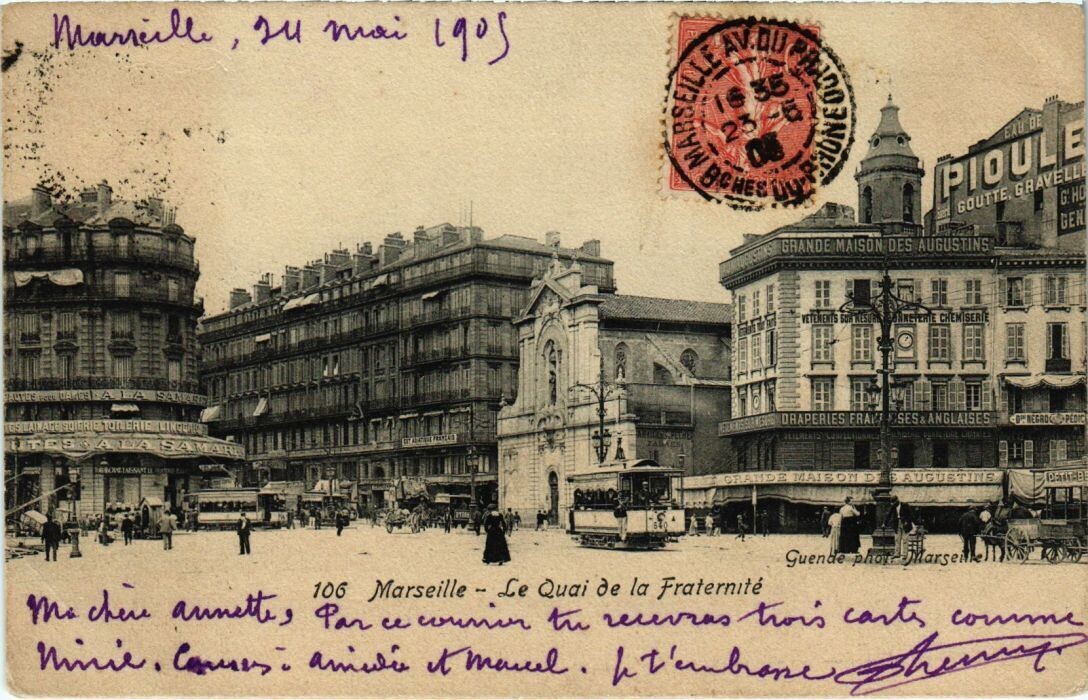 Marseille, 24 mai 1905
MARSEILLE AV. DU PRADO
16 35
23 - 5
05
BCHES DU-RHONE
EAU DE
PIOULE
GOUTTE, GRAVELLE
GRANDE MAISON DES AUGUSTINS
VETEMENTS SUR MESURE BONNETERIE CHEMISERIE
DRAPERIES FRANÇAISES & ANGLAISES
GRANDE MAISON DES AUGUSTINS
A LA SAMAR
EST ASIATIQUE FRANÇAIS
Guende phot. Marseille
106 Marseille - Le Quai de la Fraternité
Ma chère Annette, Par ce courrier tu recevras trois cartes comme
Ninie. Amédée et Marcel. Je t'embrasse